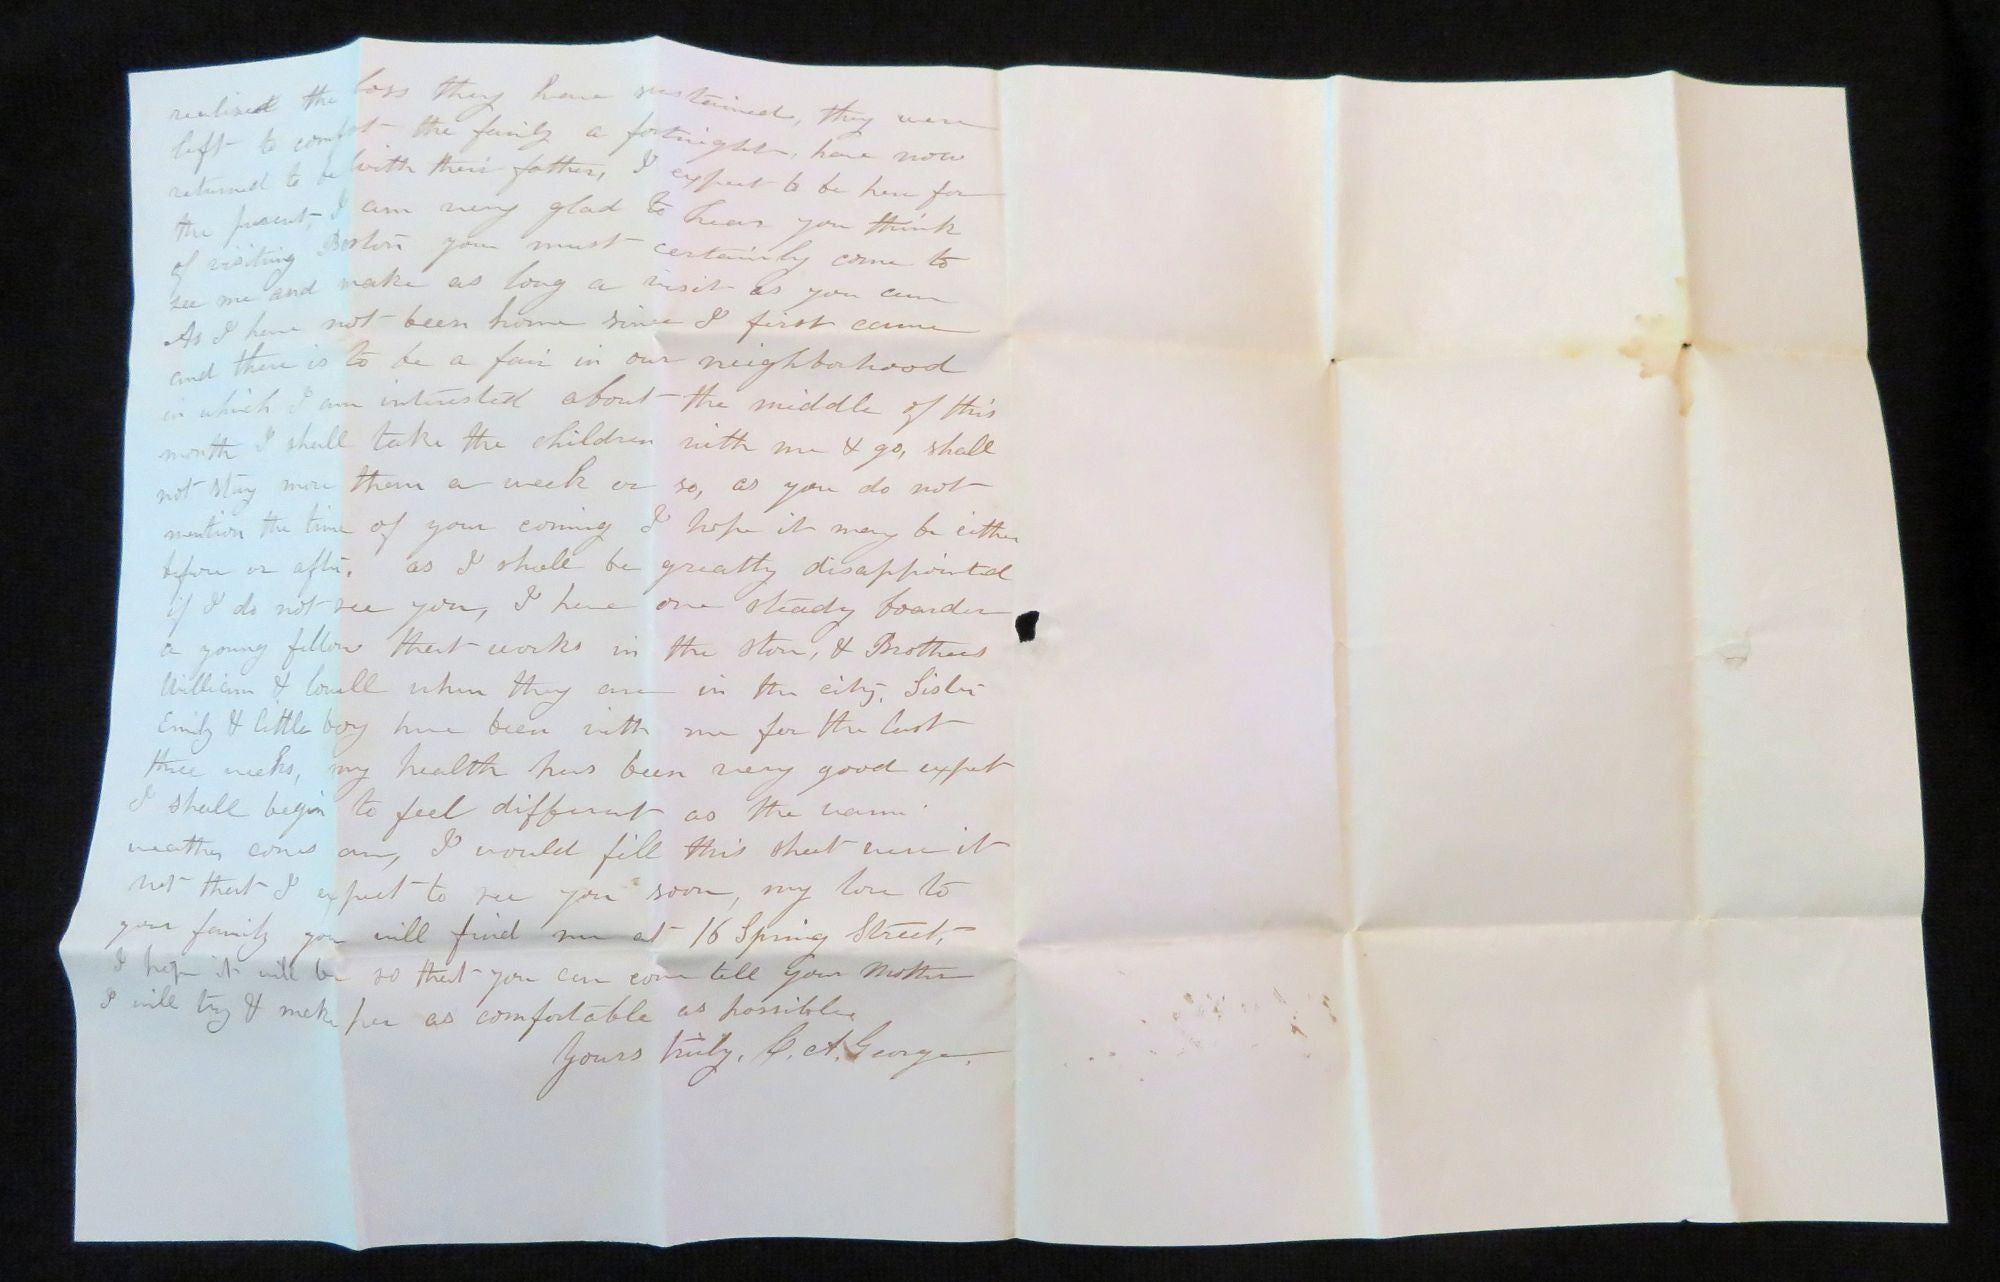 realized the loss they have sustained, they were
left to comfort the family a fortnight, have now
returned to be with their father, I expect to be here for
the present, I am very glad to hear you think
of visiting Boston you must certainly come to
see me and make as long a visit as you can
As I have not been home since I first came
and there is to be a fair in our neighborhood
in which I am interested about the middle of this
month I shall take the children with me & go, shall
not stay more than a week or so, as you do not
mention the time of your coming I hope it may be either
before or after. as I shall be greatly disappointed
if I do not see you, I have one steady boarder
a young fellow that works in the store, & Brothers
William & Lowell when they are in the city, Sister
Emily & little boy have been with me for the last
three weeks, my health has been very good expect
I shall begin to feel different as the warm
weather comes on, I would fill this sheet were it
not that I expect to see you soon, my love to
your family you will find me at 16 Spring Street,
I hope it will be so that you can come tell your Mother
I will try & make her as comfortable as possible
Yours truly, C. A. George.